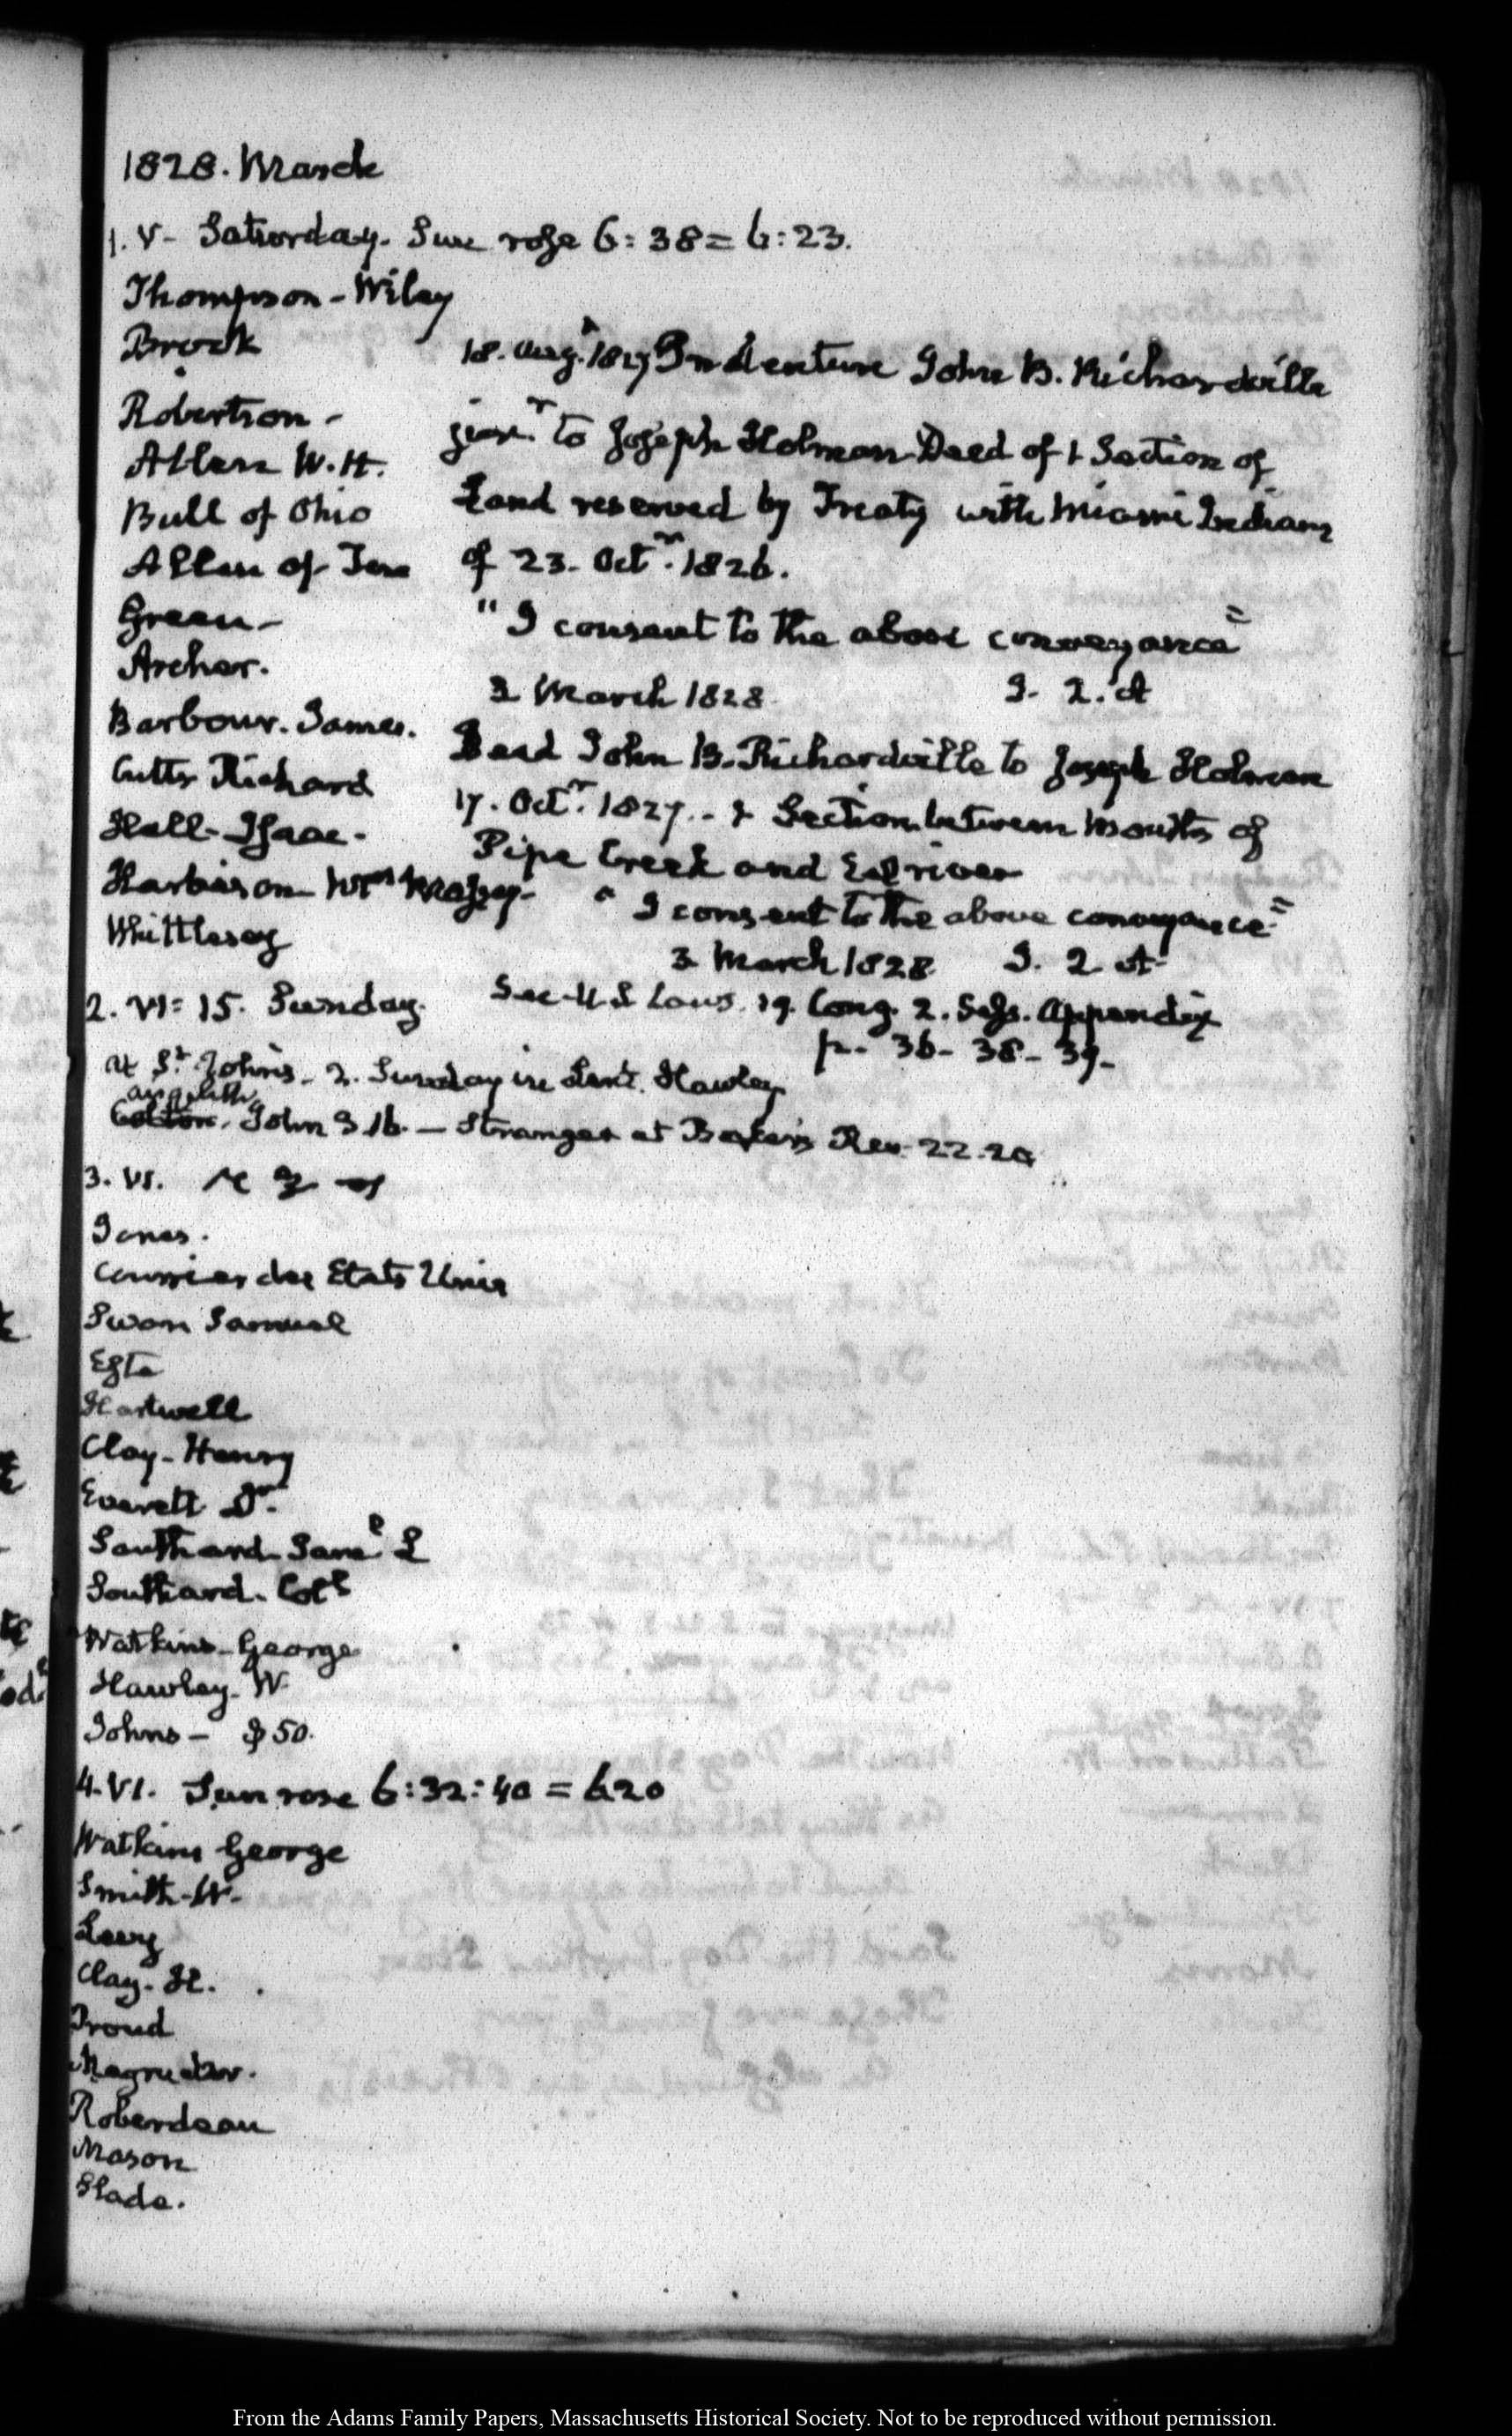 1828. March
1. V- Saturday. Sun rose 6:38 = 6:23.
Thompson - Wiley
Brook
Robertson -
Allen W. H.
Bull of Ohio
Allen of Ten
Green -
Archer.
Barbour. James.
Cutts Richard
Hall - Isaac -
Harbison Wm
Whittlesey
18. Aug. 1827 Indenture John B. Richardville
junr. to Joseph Holman Deed of 1 Section of
Land reserved by Treaty with Miami Indians
of 23. Octr. 1826.
"I consent to the above conveyance"
3 March 1828. J. Q. A
Deed John B. Richardville to Joseph Holman
17. Octr. 1827. - 2 Section between Mouths of
Pipe Creek and Eel river
"I consent to the above conveyance"
3 March 1828. J. Q A-
See U S Laws. 19. Cong. 2. Sess. Appendix
p. 36 - 38 - 39 -
2. VI: 15. Sunday.
at St. Johns - 2. Sunday in Lent. Hawley
John 3.16. - Stranger at Baker's Rev. 22.20
3. VI.
Jones.
Courrier des Etats Unis
Swan Samuel
Este
Hartwell
Clay - Henry
Everett Dr.
Southard - Saml. L
Southard - Coll
Watkins - George
Hawley - W.
Johns - $ 50.
4. VI. Sun rose 6:32:40 = 620
Watkins George
Smith - W -
Levy
Clay - H.
Proud
Magruder.
Roberdeau
Mason
Slade.
From the Adams Family Papers, Massachusetts Historical Society. Not to be reproduced without permission.